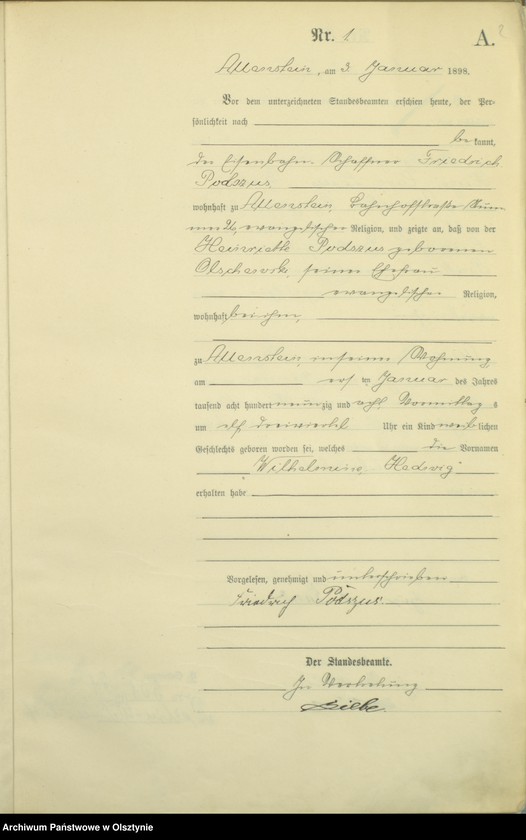 Nr. 1
A.
Allenstein, am 3. Januar 1898.
Vor dem unterzeichneten Standesbeamten erschien heute, der Per-
sönlichkeit nach
bekannt,
der Eisenbahn-Schaffner Friedrich
Podszus,
wohnhaft zu Allenstein, Bahnhofstraße Num-
mer evangelischer Religion, und zeigte an, daß von der
Henriette Podszus geborenen
seiner Ehefrau
evangelischer Religion,
wohnhaft bei ihm,
zu Allenstein in seiner Wohnung
am ersten Januar des Jahres
tausend acht hundert neunzig und acht Vormittags
um elf dreiviertel Uhr ein Kind weiblichen
Geschlechts geboren worden sei, welches die Vornamen
Wilhelmine Hedwig
erhalten habe
Vorgelesen, genehmigt und unterschrieben
Friedrich Podszus
Der Standesbeamte.
In Vertretung
Archiwum Państwowe w Olsztynie